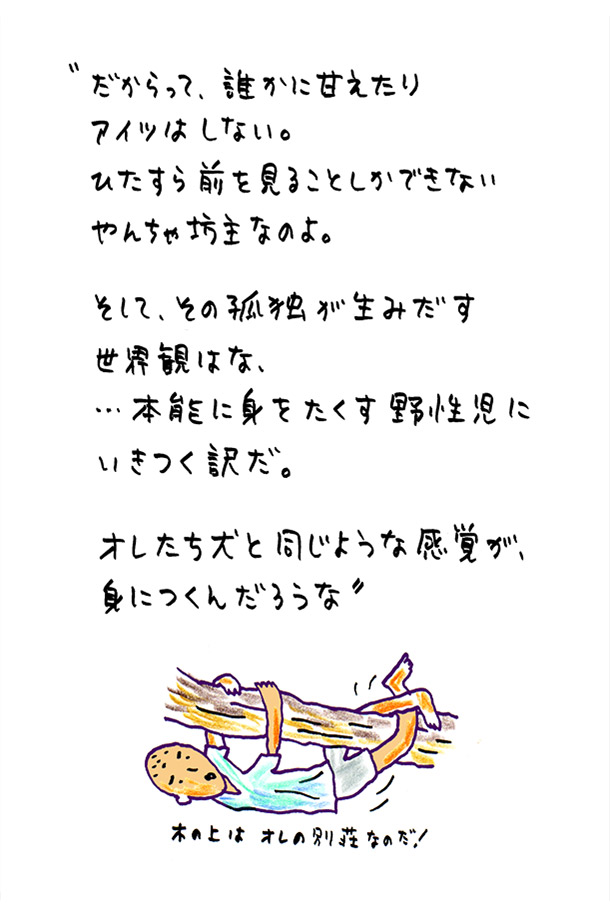 〝だからって、誰かに甘えたり
アイツはしない。
ひたすら前を見ることしかできない
やんちゃ坊主なのよ。
そして、その孤独が生みだす
世界観はな、
…本能に身をたくす野性児に
いきつく訳だ。
オレたち犬と同じような感覚が、
身につくんだろうな〞
木の上は オレの別荘なのだ!